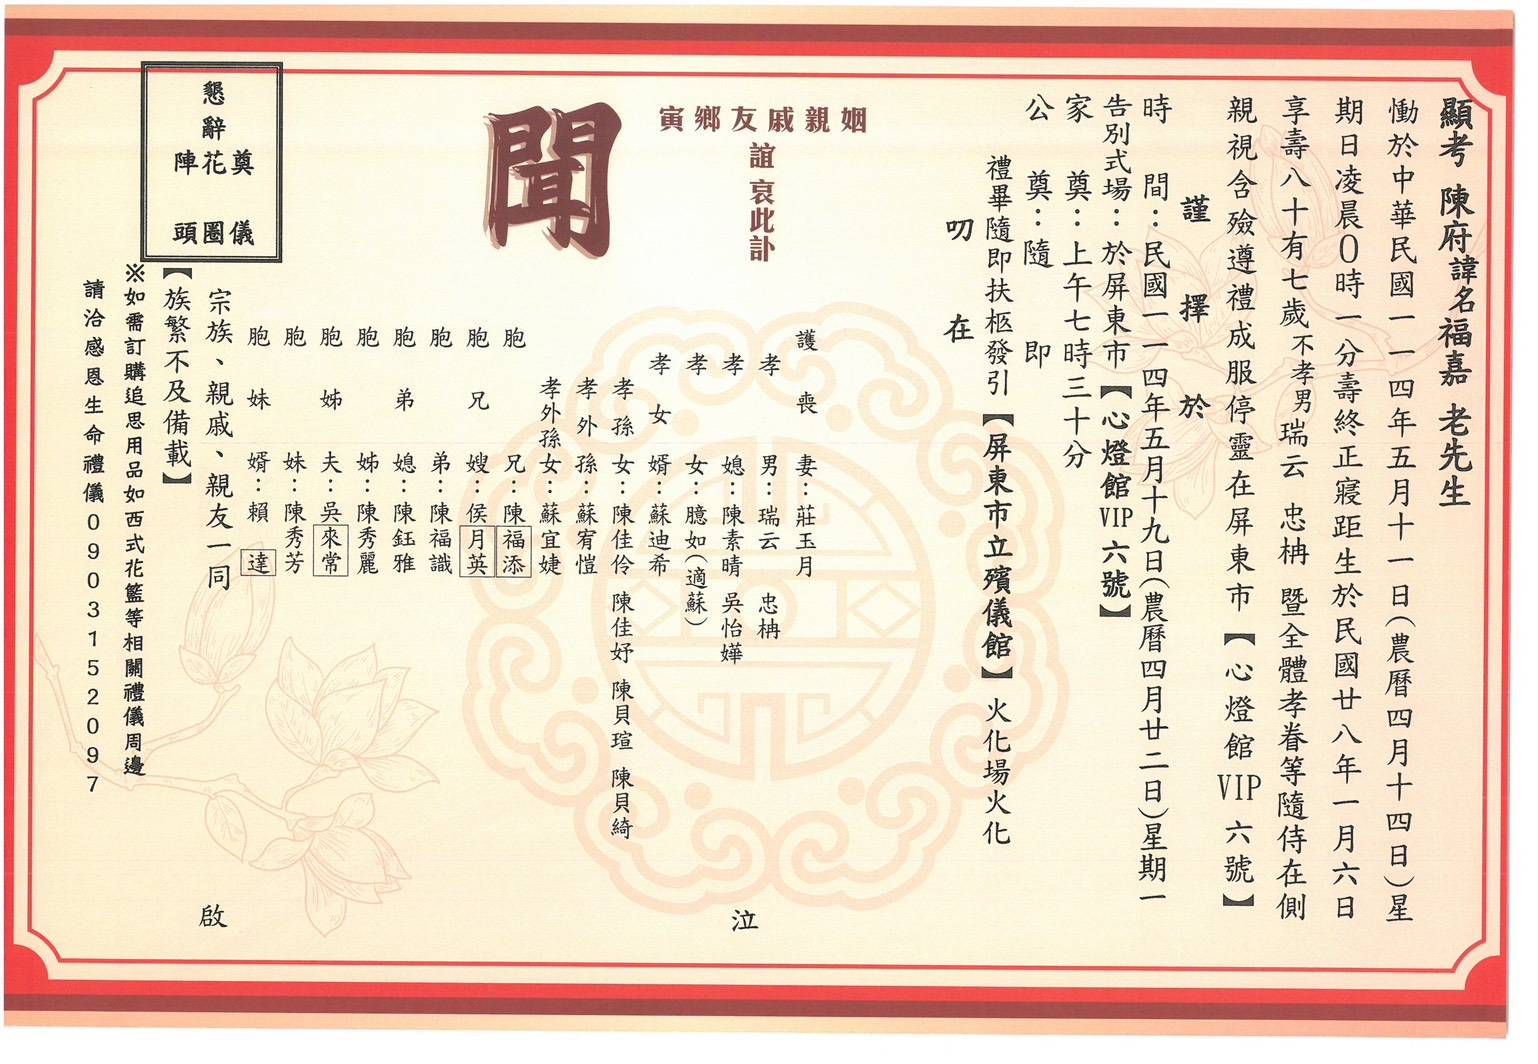 顯考 陳府諱名福嘉 老先生
慟於中華民國一一四年五月十一日(農曆四月十四日)星
期日凌晨0時一分壽終正寢距生於民國廿八年一月六日
享壽八十有七歲不孝男瑞云 忠柟 暨全體孝眷等隨侍在側
親視含殮遵禮成服停靈在屏東市【心燈館VIP六號】
謹擇於
時間：民國一一四年五月十九日(農曆四月廿二日)星期一
告別式場：於屏東市【心燈館VIP六號】
家奠：上午七時三十分
公奠：隨即
禮畢隨即扶柩發引【屏東市立殯儀館】火化場火化
叨在
姻親戚友鄉寅
誼 哀此訃
聞
護喪妻：莊玉月
孝男：瑞云 忠柟
孝媳：陳素晴 吳怡嬅
孝女：臆如(適蘇)
孝女婿：蘇迪希
孝孫女：陳佳伶 陳佳妤 陳貝瑄 陳貝綺
孝外孫：蘇宥愷
孝外孫女：蘇宜婕
胞兄：陳福添
胞兄嫂：侯月英
胞弟：陳福識
胞弟媳：陳鈺雅
胞姊：陳秀麗
胞姊夫：吳來常
胞妹：陳秀芳
胞妹婿：賴達
泣
宗族、親戚、親友一同
啟
【族繁不及備載】
懇辭
奠儀
花圈
陣頭
※如需訂購追思用品如西式花籃等相關禮儀周邊
請洽感恩生命禮儀0903152097